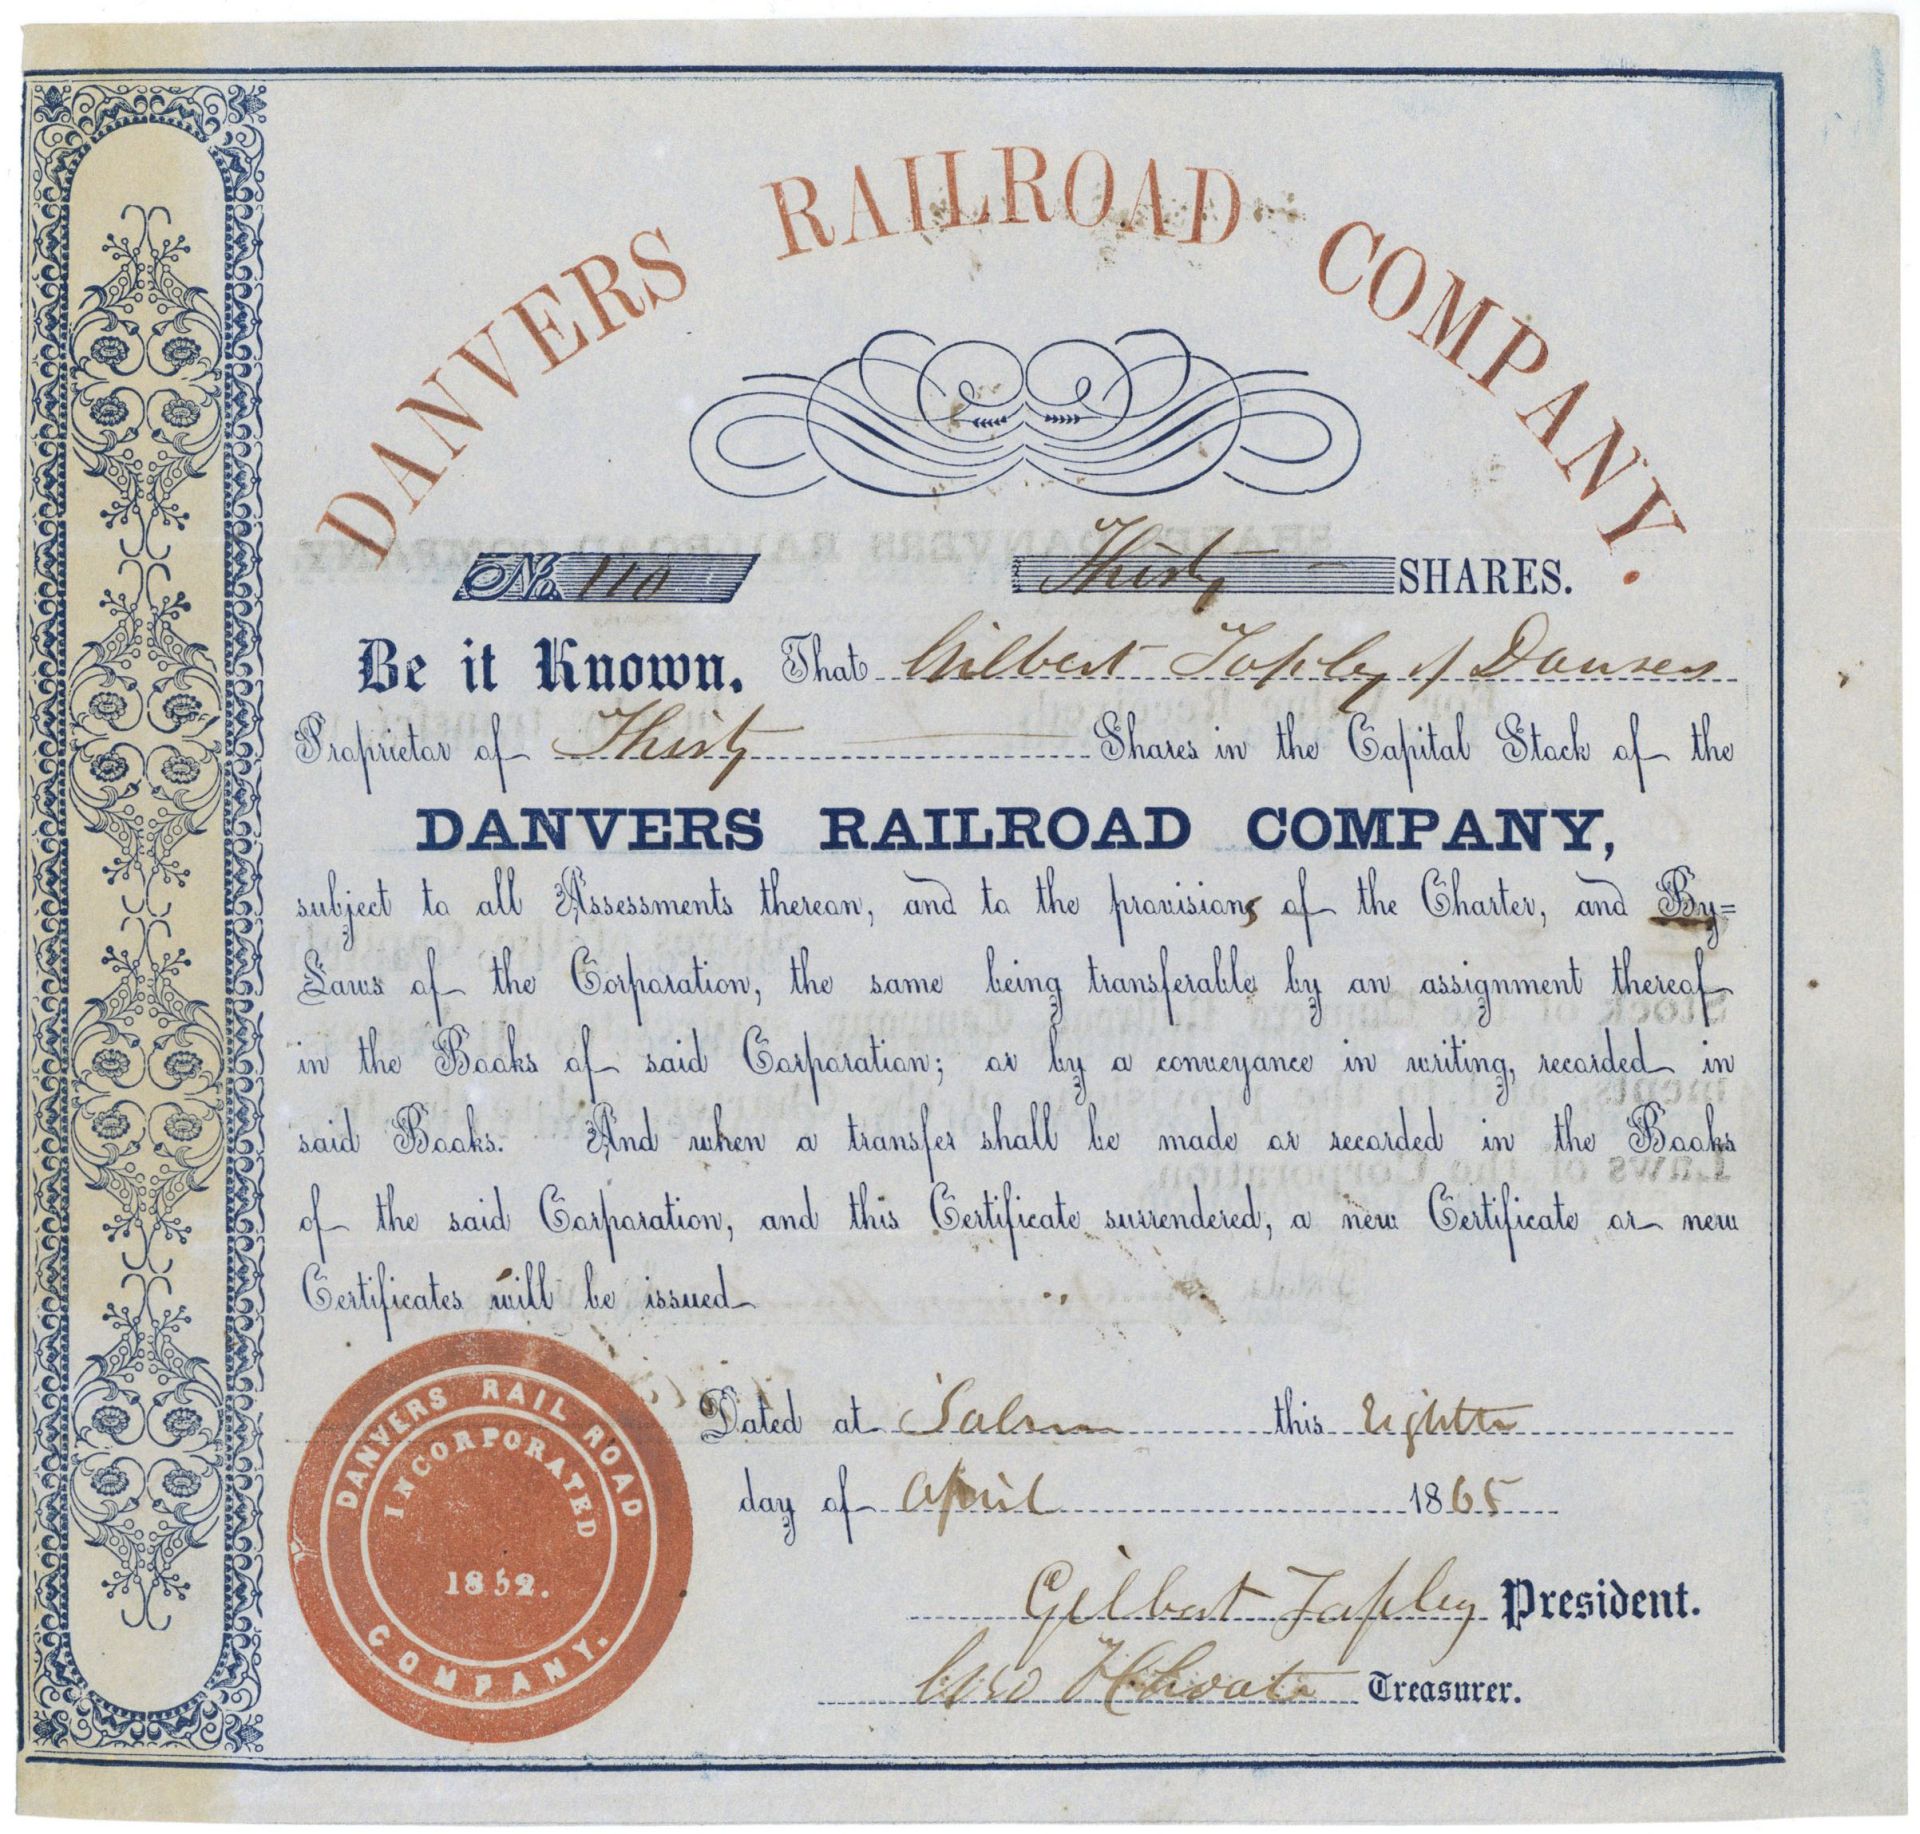 DANVERS RAILROAD COMPANY.
No. 110 Thirty SHARES.
Be it Known, That Gilbert Tapley of Danvers
Proprietor of Thirty Shares in the Capital Stock of the
DANVERS RAILROAD COMPANY,
subject to all Assessments thereon, and to the provisions of the Charter, and By=
Laws of the Corporation, the same being transferable by an assignment thereof
in the Books of said Corporation; or by a conveyance in writing, recorded in
said Books. And when a transfer shall be made or recorded in the Books
of the said Corporation, and this Certificate surrendered, a new Certificate or new
Certificates will be issued
Dated at Salem this Eighth
day of April 1865
Gilbert Tapley President.
Geo Treasurer.
DANVERS RAIL ROAD
COMPANY.
INCORPORATED
1852.